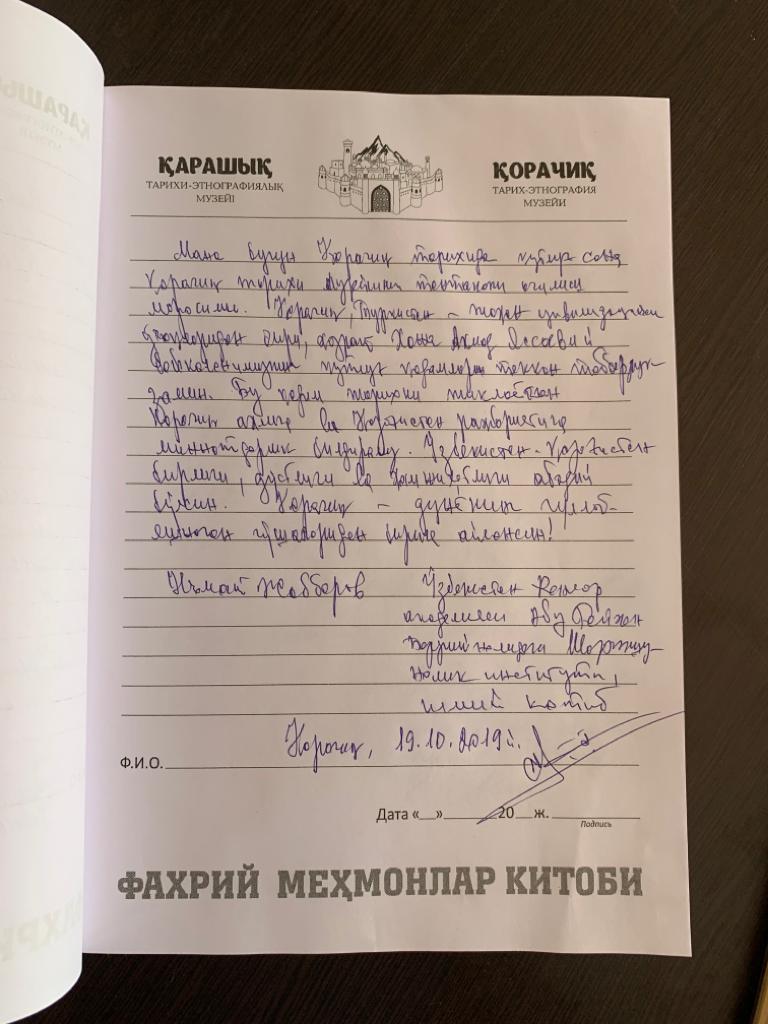 ҚАРАШЫҚ
ТАРИХИ-ЭТНОГРАФИЯЛЫҚ
МУЗЕЙІ
ҚОРАЧИҚ
ТАРИХ-ЭТНОГРАФИЯ
МУЗЕЙИ
Мана бугун Қорачиқ тарихида қутлуғ сана
Қорачиқ тарихи музейининг тантанали очилиш
маросими. Қорачиқ, Туркистон – жаҳон цивилизацияси
бири, ҳазрат Хожа Аҳмад Яссавий
қутлуғ қадамлари теккан табаррук
замин. Бу қадим тарихни тиклаётган
Қорачиқ аҳлига ва Қозоғистон раҳбариятига
миннатдорлик билдираман. Ўзбекистон-Қозоғистон
бирлиги, дўстлиги ва ҳамжиҳатлиги абадий
бўлсин. Қорачиқ – дунёнинг гуллаб-
яшнаган гўшаларидан бирига айлансин!
Нъмат Жабборов
Ўзбекистон Фанлар
академияси Абу Райҳон
Беруний номидаги Шарқшу-
нослик институти,
илмий котиб
Қорачиқ, 19.10.2019й.
Ф.И.О.
Дата «__»________20__ж.
Подпись
ФАХРИЙ МЕҲМОНЛАР КИТОБИ